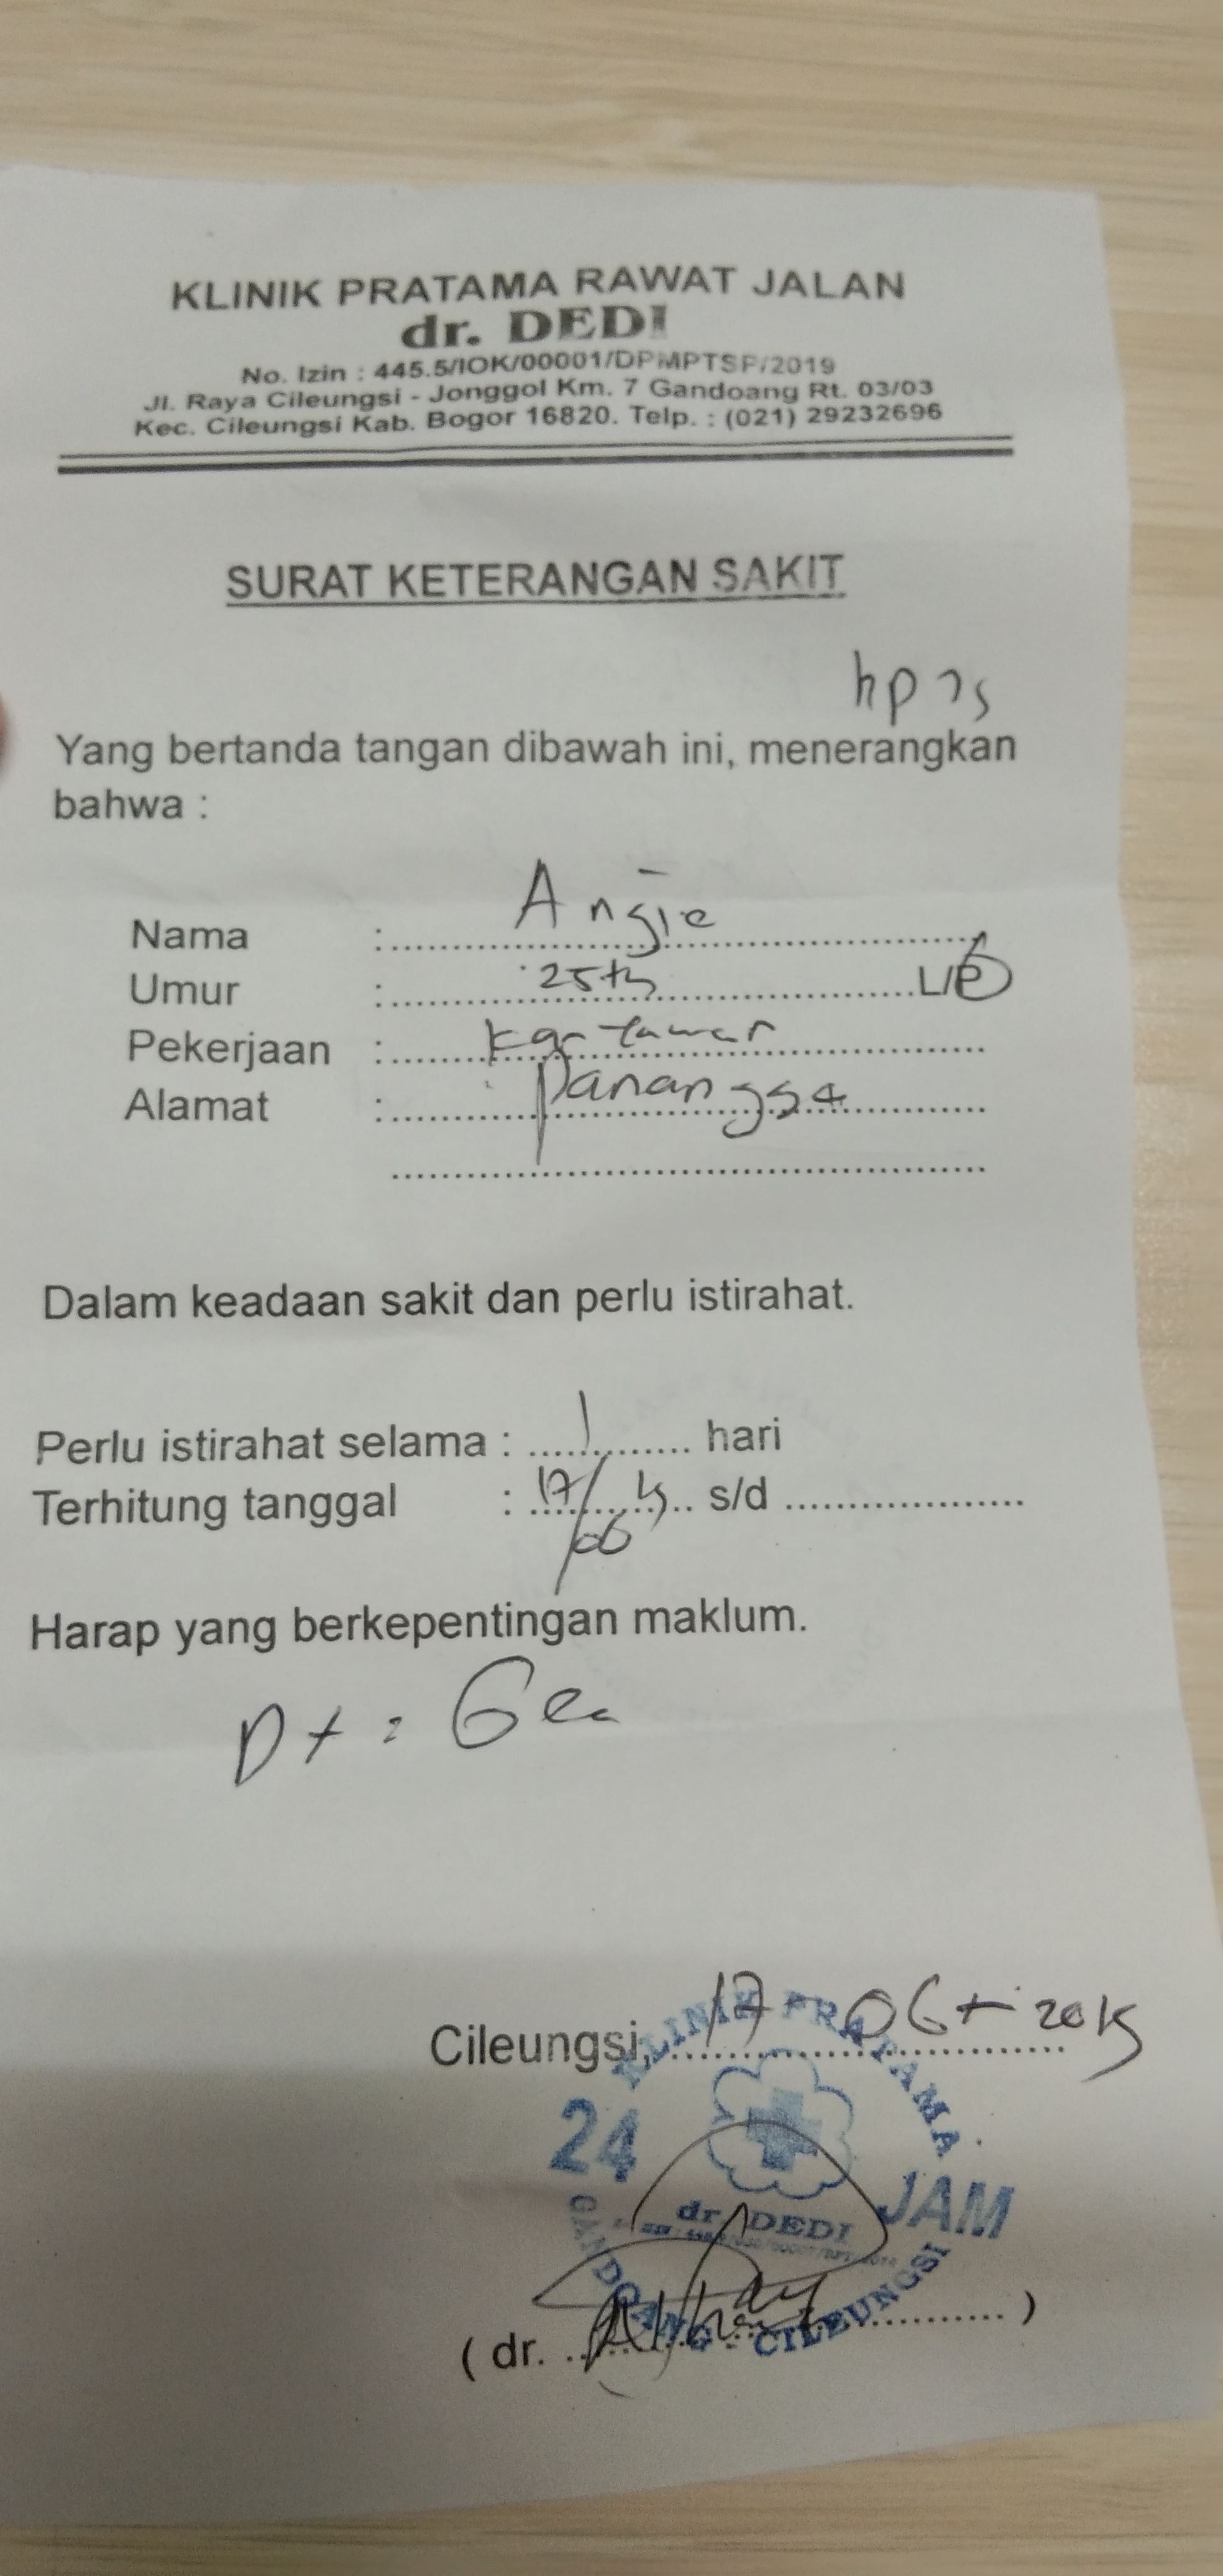 KLINIK PRATAMA RAWAT JALAN
dr. DEDI
No. Izin : 445.5/IOK/00001/DPMPTSP/2019
Jl. Raya Cileungsi - Jonggol Km. 7 Gandoang Rt. 03/03
Kec. Cileungsi Kab. Bogor 16820. Telp. : (021) 29232696
SURAT KETERANGAN SAKIT
Yang bertanda tangan dibawah ini, menerangkan
bahwa :
Nama : Angie
Umur : 25th L/P
Pekerjaan :
Alamat :
Dalam keadaan sakit dan perlu istirahat.
Perlu istirahat selama : 1 hari
Terhitung tanggal : 17/06 s/d
Harap yang berkepentingan maklum.
Cileungsi, 17-06-
KLINIK PRATAMA
24 JAM
dr. DEDI
GANDOANG - CILEUNGSI
(dr. )